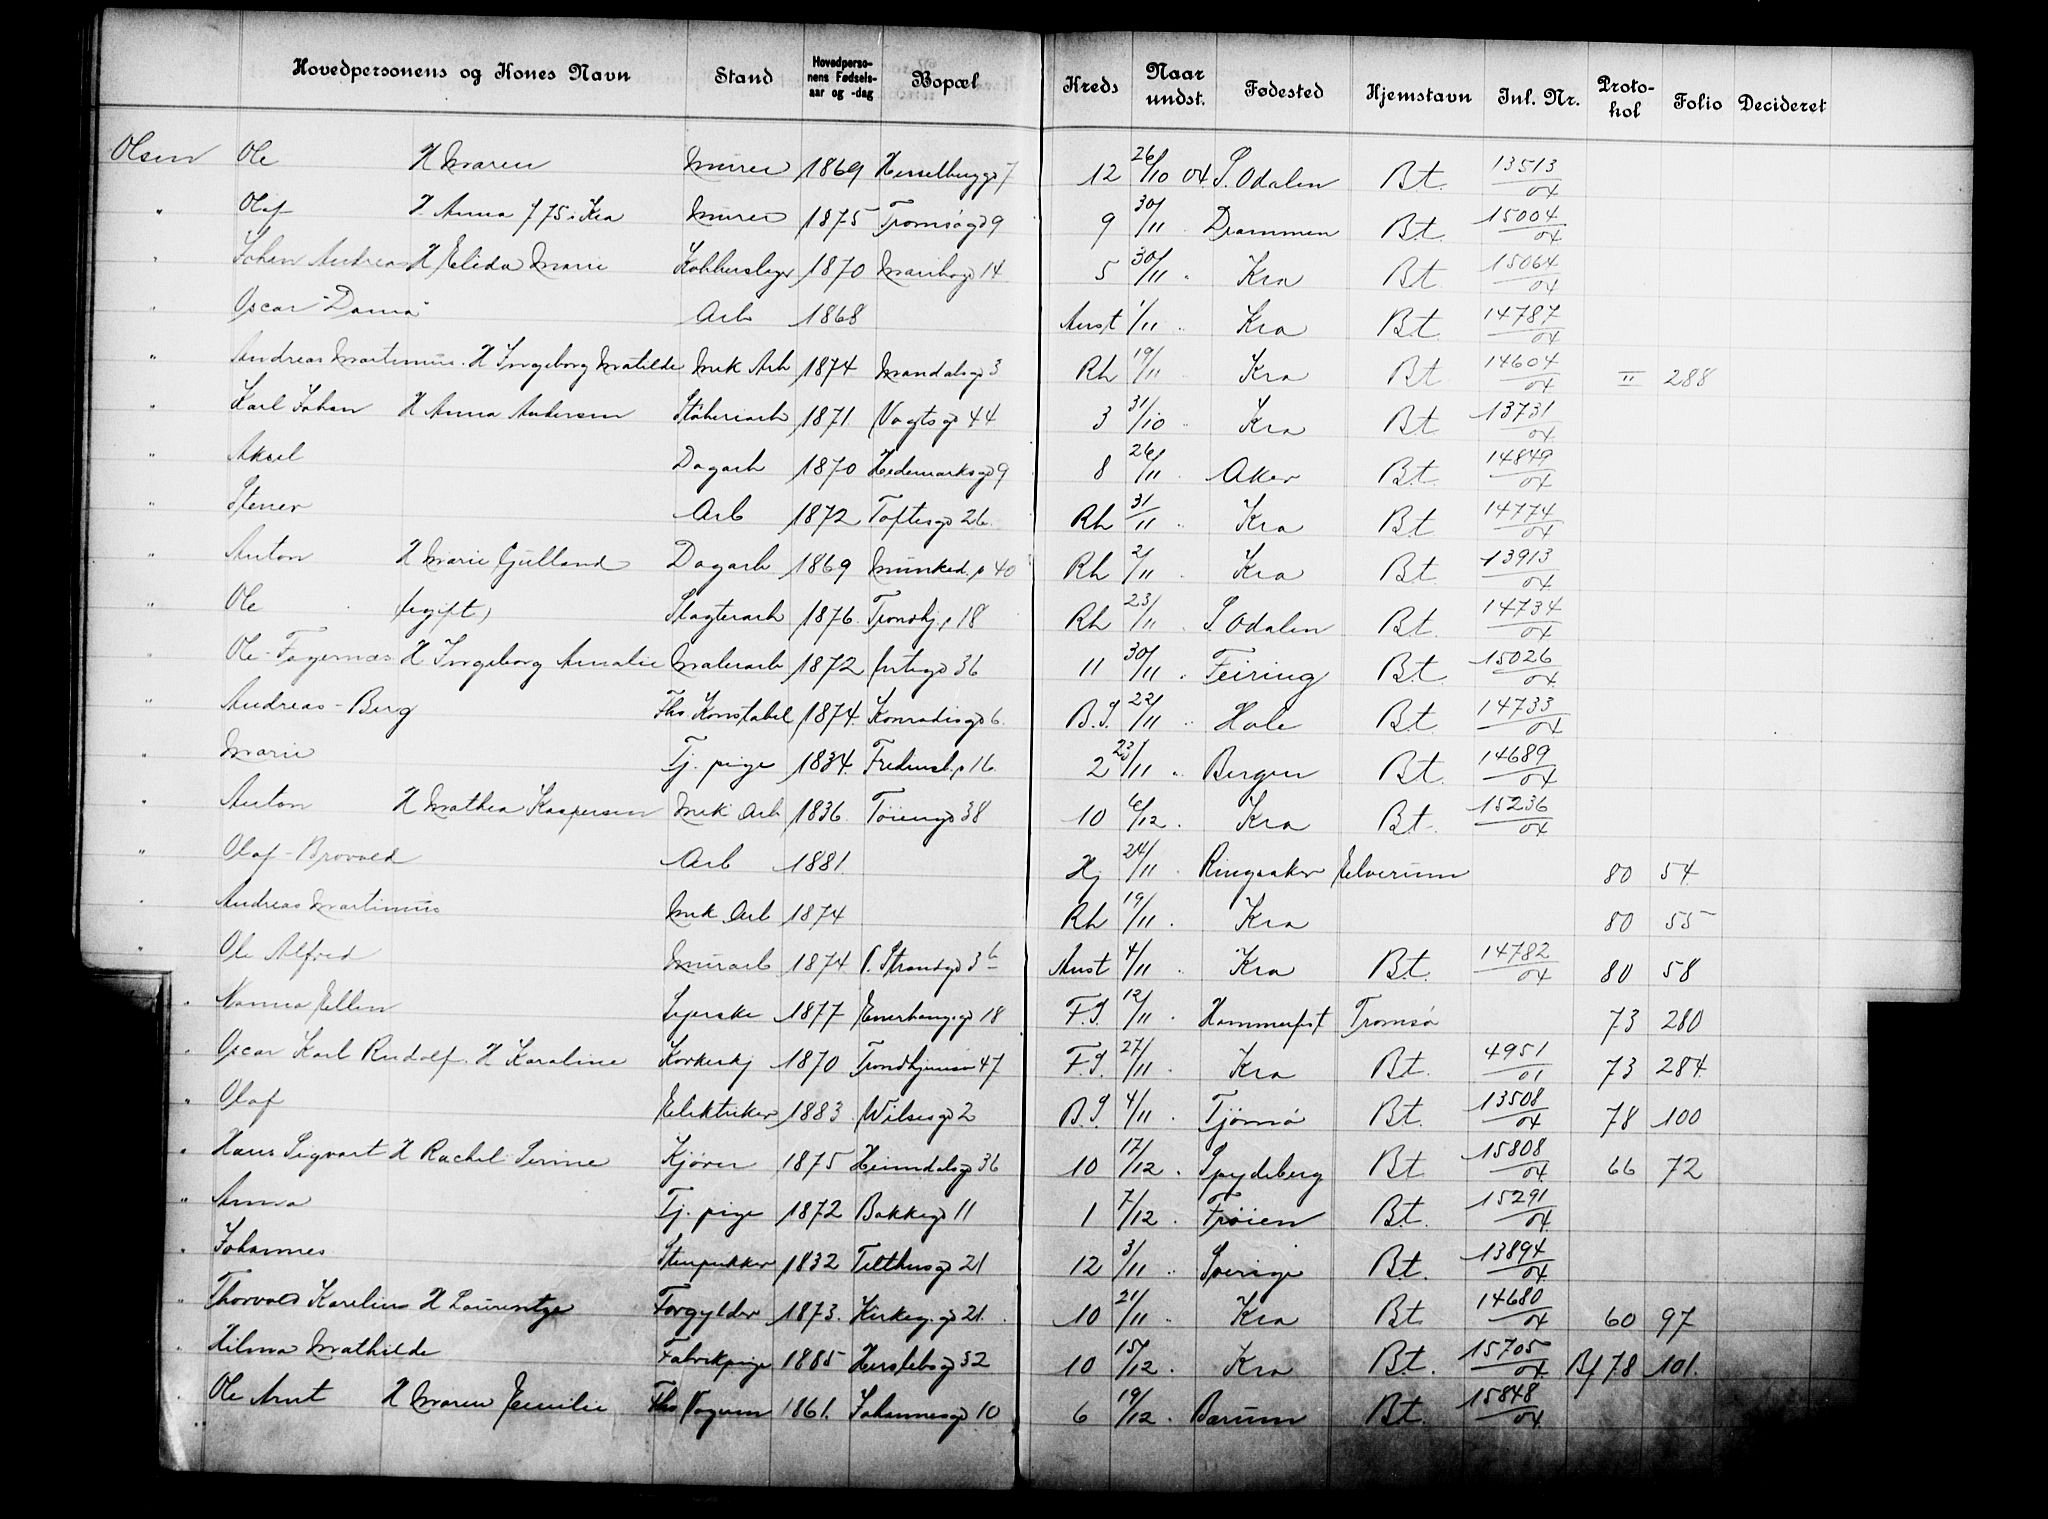 Hovedpersonens og Kones Navn Stand Hovedperso-nens Fødsels-aar og -dag Bopæl Kreds Naar undst. Fødested Hjemstavn Inl. Nr. Proto-kol Folio Decideret
Olsen Ole H Maren Murer 1869 Hesselbergg 7 12 26/10 04 S. Odalen Bt. 13513/04
" Olaf H. Anna f 75 i Kra Murer 1875 Tromsøgd 9 9 30/11 " Drammen Bt. 15004/04
" Johan Andreas H Elida Marie Kobberslager 1870 Maribog 14 5 30/11 " Kra Bt 15064/04
" Oscar - Dania Arb 1868 Anst 1/11 " Kra Bt. 14787/04
" Andreas Martinius. H Ingeborg Matilde Mek Arb 1874 Mandalsgd 3 Rh 19/11 Kra Bt 14604/04 II 288
" Karl Johan H Anna Andersen Støberiarb 1871 Vogtsgd 44 3 31/10 " Kra Bt 13731/04
" Aksel Dagarb 1870 Hedemarksgd 9 8 26/11 " Aker Bt. 14849/04
" Stener Arb 1872 Toftesgd 26. Rh 31/11 " Kra Bt 14774/04
" Anton H Marie Gulland Dagarb 1869 Munked. v 40 Rh 2/11 " Kra Bt 13913/04
" Ole (gift) Slagterarb 1876. Trondhj v 18 Rh 23/11 S. Odalen Bt. 14734/04
" Ole - Fagernæs H Ingeborg Amalie Malerarb 1872 36 11 30/11 " Feiring Bt. 15026/04
" Andreas - Berg Fhs. Konstabel 1874. Konradisgd 6. B.S. 22/11 " Hole Bt. 14733/04
" Marie Tj. pige 1834. Fredensb. v 16. 2 23/11 " Bergen Bt. 14689/04
" Anton H Mathea Kaspersen Mek Arb 1836. Tøiengd 38 10 6/12 " Kra Bt. 15236/04
" Olaf - Brovold Arb 1881. Hj 24/11 " Ringsaker Elverum 80 54
" Andreas Martinius Mek Arb 1874 Rh 19/11 " Kra 80 55
" Ole Alfred Murarb 1874 Strandgd 3 b Anst 4/11 " Kra Bt. 14782/04 80 58
" Nanna Ellen Syerske 1877 Enerhaugsgd 18 F.S. 12/11 " Hammerfest Tromsø 73 280
" Oscar Karl Rudolf. H Karoline Korkerbj 1870 Trondhjemsv 47 F.S. 27/11 " Kra Bt. 4951/01 73 284
" Olaf Elektriker 1883. Wilsesgd 2 B.S 4/11 " Tjømø Bt. 13508/04 78 100
" Hans Sigvart H Rachel Serine Kjører 1875 Heimdalsgd 36 10 17/12 " Spydeberg Bt 15808/04 66 72
" Anna Tj. pige 1872 Bakkegd 11 1 7/12 " Frøien Bt. 15291/04
" Johannes Stenpukker 1832 Telthusgd 21 12 3/11 " Sverige Bt. 13894/04
" Thorvald Karelius H Laurentze Forgylder 1873. Kirkeg. gd 21. 10 21/11 " Kra Bt. 14680/04 60 97
" Hilma Mathilde Fabrikpige 1885 Herslebsgd 32 10 15/12 " Kra Bt. 15705/04 Bf 78 101.
" Ole Arnt H Maren Emilie Fhs Vognm 1861. Johannesgd 10 6 19/12 " Bærum Bt. 15848/04